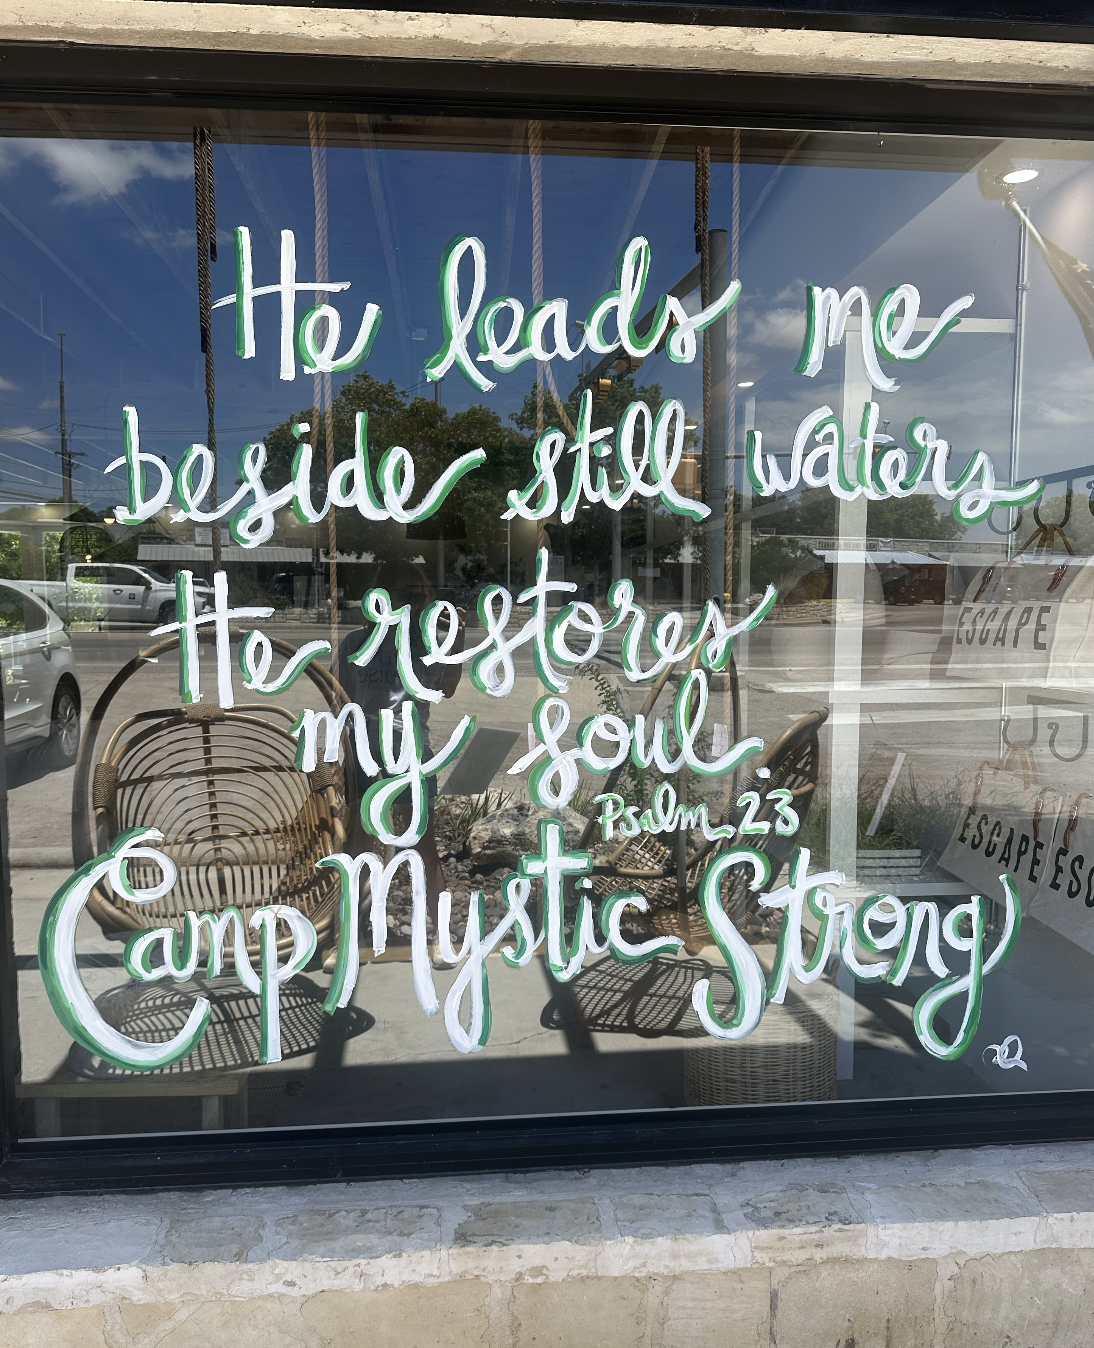 He leads me
beside still waters
He restores
my soul.
Psalm 23
Camp Mystic Strong
ESCAPE
ESCAPE